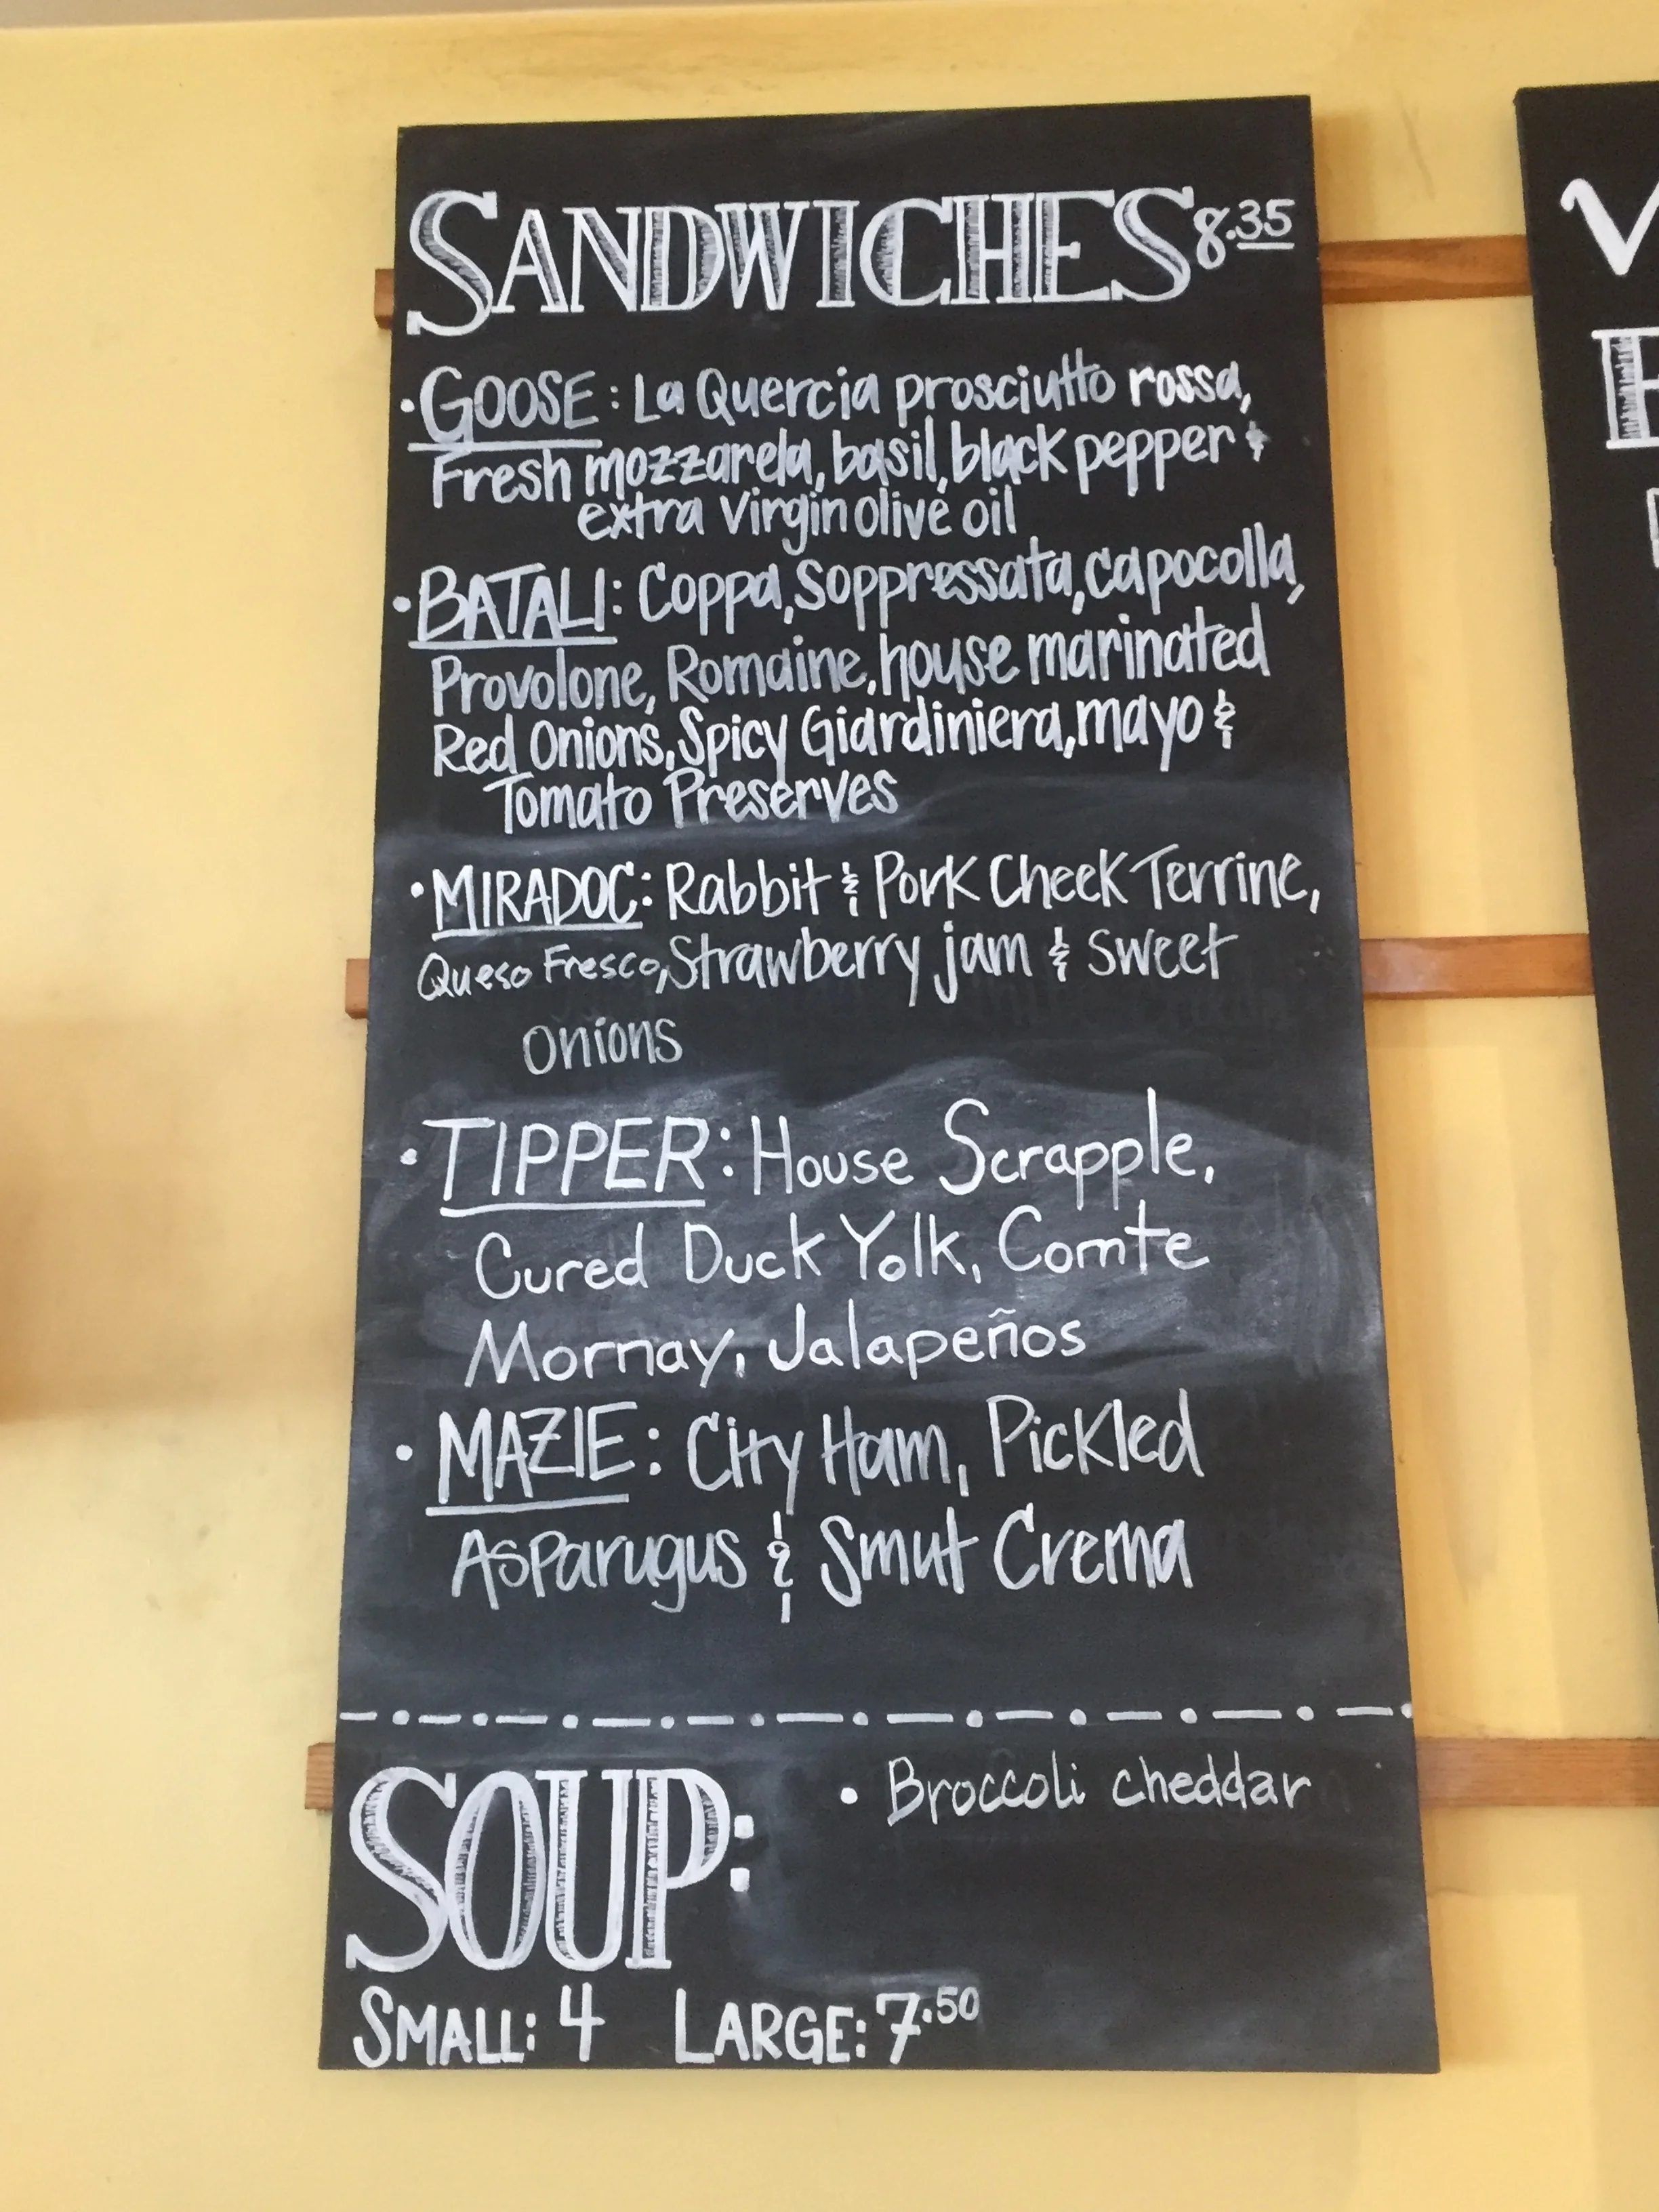 SANDWICHES 8.35
• GOOSE: La Quercia prosciutto rossa,
Fresh mozzarela, basil, black pepper &
extra virgin olive oil
• BATALI: Coppa, Soppressata, capocolla,
Provolone, Romaine, house marinated
Red Onions, Spicy Giardiniera, mayo &
Tomato Preserves
• MIRADOC: Rabbit & Pork Cheek Terrine,
Queso Fresco, Strawberry jam & sweet
onions
• TIPPER: House Scrapple,
Cured Duck Yolk, Comte
Mornay, Jalapeños
• MAZIE: City Ham, Pickled
Asparugus & Smut Crema
SOUP: • Broccoli cheddar
SMALL: 4 LARGE: 7.50